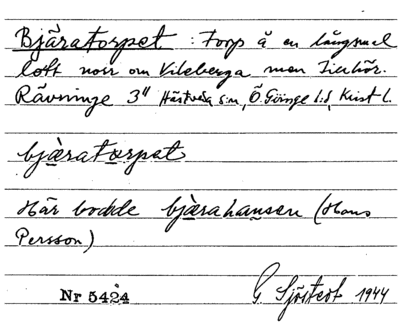 Bjäratorpet : Torp å en långsmal
loft norr om Vileberga men
Rävninge 3" Hästveda s:n, Ö. Göinge h:d, Krist l.
bjäratorpet
Här bodde bjärahansen (Hans
Persson)
Nr 5424 G. Sjöstedt 1944